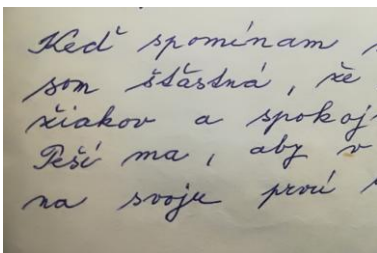 Keď spomínam
som šťastná, že
žiakov a spokoj
Teší ma, aby v
na svoju prvú